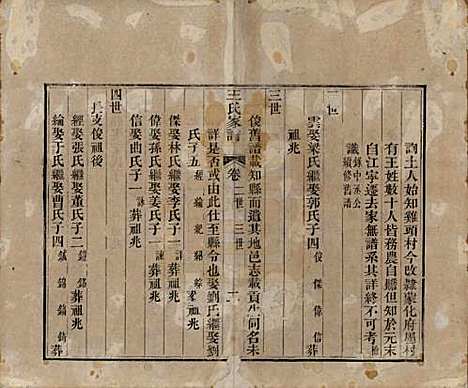 詢土人始知雞頭村今改隸蒙化府屬村
有王姓數十人皆務農自贍但知於元末
自江寧遷去家無譜系其詳終不可考
識 錄中丞公
續修舊譜
二世
雲娶梁氏繼娶郭氏子四 俊 傑 偉 信
祖兆
三世
俊舊譜載知縣而遺其地邑志載貢生問名未
王氏家譜 卷二 二世 三世 一
詳是否或由此仕至縣令也娶劉氏繼娶劉
氏子五 經 綸 紀 葬祖兆
傑娶林氏繼娶李氏子一 葬祖兆
偉娶孫氏繼娶姜氏子一 葬祖兆
信娶曲氏子一 葬祖兆
四世
長支俊祖後
經娶張氏繼娶董氏子二 葬祖兆
綸娶于氏繼娶曹氏子四 葬